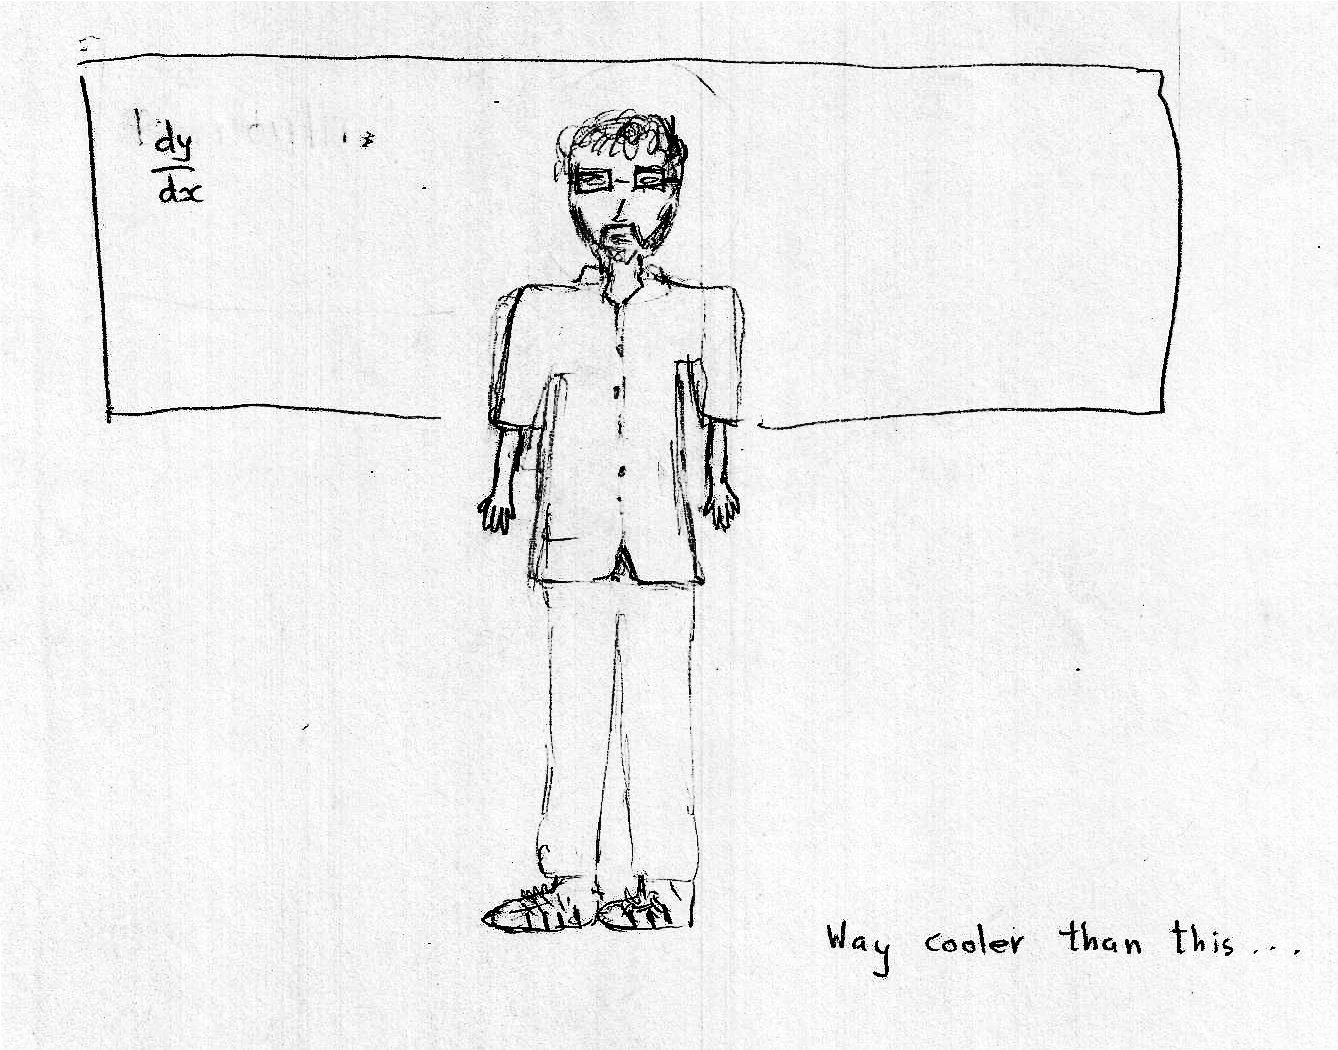 dy
dx
Way cooler than this...